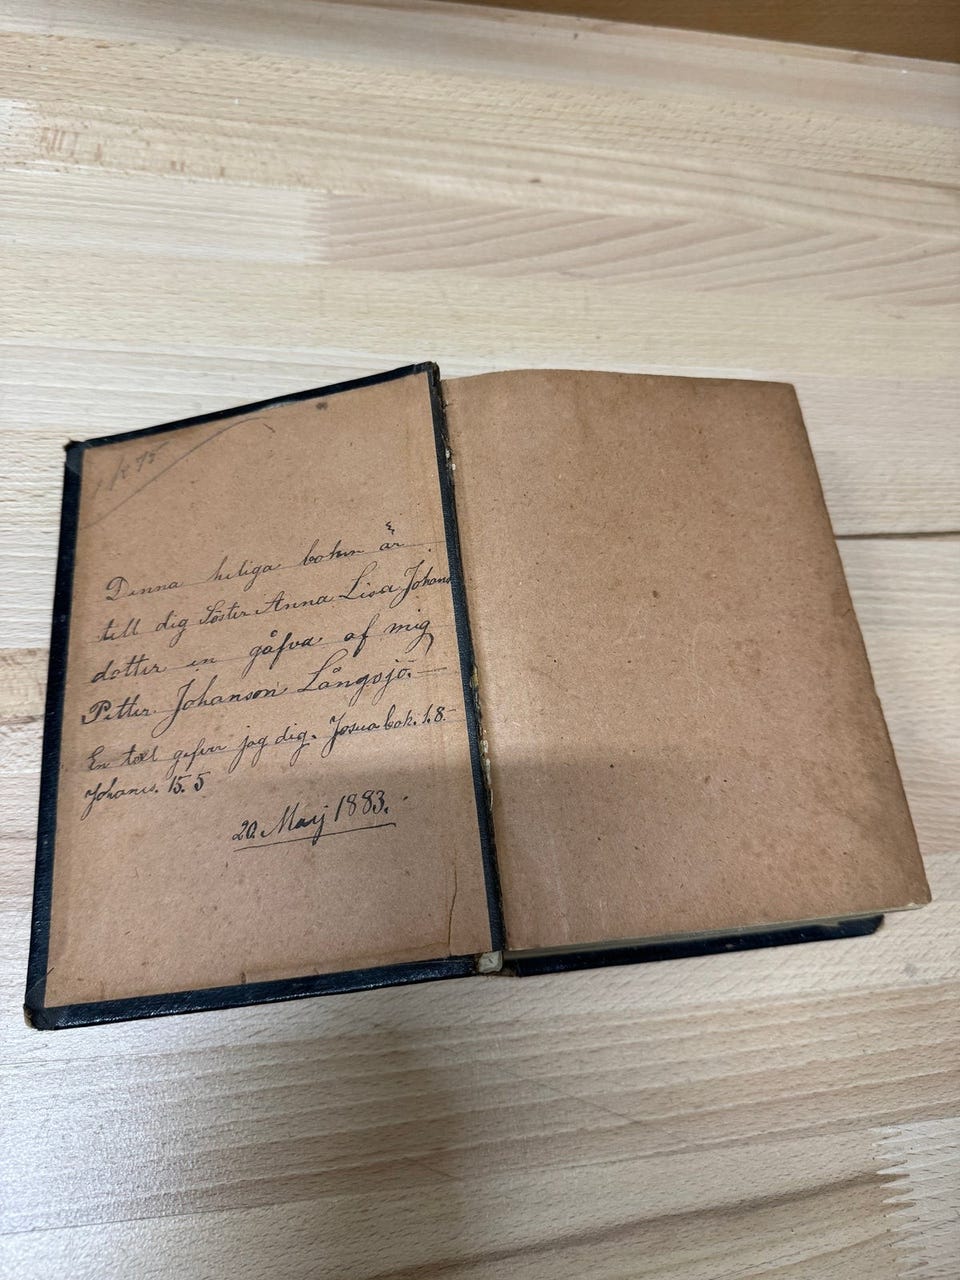 K 75
Denna heliga boken är
till dig Söster Anna Lisa Johans
dotter en gåfva af mig
Petter Johanson Långsjö. —
En text gifver jag dig. Josua bok. 1.8.
Johanes. 15. 5
20. Maij 1883.